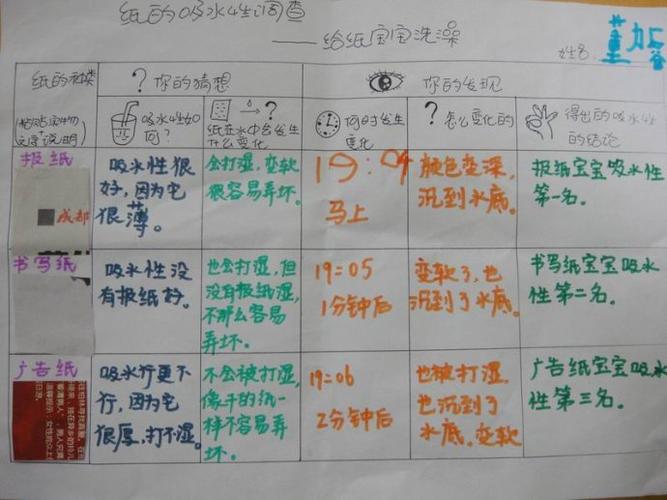 纸的吸水性调查
——给纸宝宝洗澡
姓名
董加睿
纸的种类
(粘贴实物+
文字说明)
?你的猜想
你的发现
吸水性如
何?
→?
纸在水中会发生
什么变化
何时发生
变化
?怎么变化的
得出的吸水性
的结论
报纸
成都
吸水性很
好,因为它
很薄。
会打湿,变软
很容易弄坏。
19:04
马上
颜色变深,
沉到水底。
报纸宝宝吸水性
第一名。
书写纸
吸水性没
有报纸好。
也会打湿,但
没有报纸湿,
不那么容易
弄坏。
19:05
1分钟后
变软了,也
沉到了水底。
书写纸宝宝吸水
性第二名。
广告纸
吸水行更不
行,因为它
很厚,打不湿。
不会被打湿,
像干的纸一
样不容易弄
坏。
19:06
2分钟后
也被打湿,
也沉到了
水底。变软
广告纸宝宝吸水
性第三名。